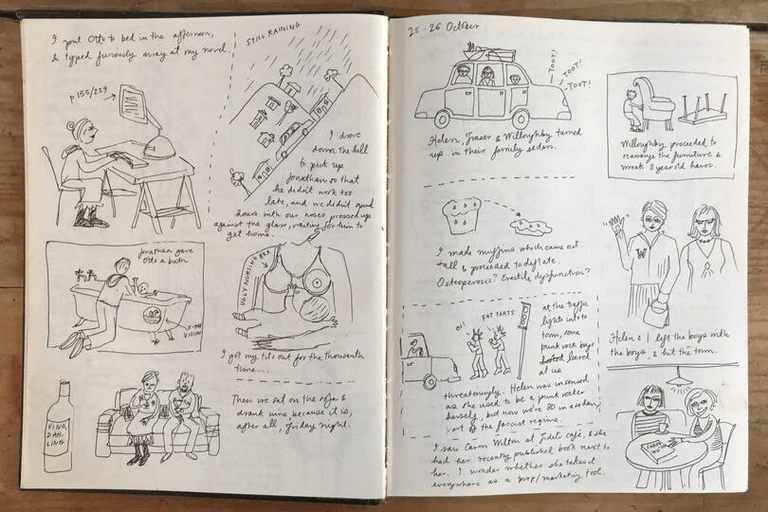 I put Otto to bed in the afternoon,
& typed furiously away at my novel.
p 155/229
STILL RAINING
I drove
down the hill
to pick up
Jonathan so that
he didn't work too
late, and we didn't spend
hours with our noses pressed up
against the glass, waiting for him to
get home.
Jonathan gave
Otto a bath
X-RAY
VISION
UGLY NURSING BRA
I got my tits out for the thousandth
time...
VINO,
DAH-
LING
Then we sat on the sofa &
drank wine because it is,
after all, Friday night.
25-26 October
TOOT!
TOOT!
TOOT!
Helen, Fraser & Willoughby turned
up in their family sedan.
Willoughby proceeded to
rearrange the furniture &
wreak 3 year old havoc.
I made muffins which came out
tall & proceeded to deflate.
Osteoporosis? Erectile dysfunction?
W
Helen & I left the boys with
the boys, & hit the town.
OI!
EAT TARTS
at the traffic
lights into
town, some
punk rock boys
leered
at us
threateningly. Helen was incensed
as she used to be a punk rocker
herself, but now we're 30 in a sedan,
part of the fascist regime.
I saw Carin Wilton at Fidel's café, & she
had her recently published book next to
her. I wonder whether she takes it
everywhere as a prop/marketing tool.